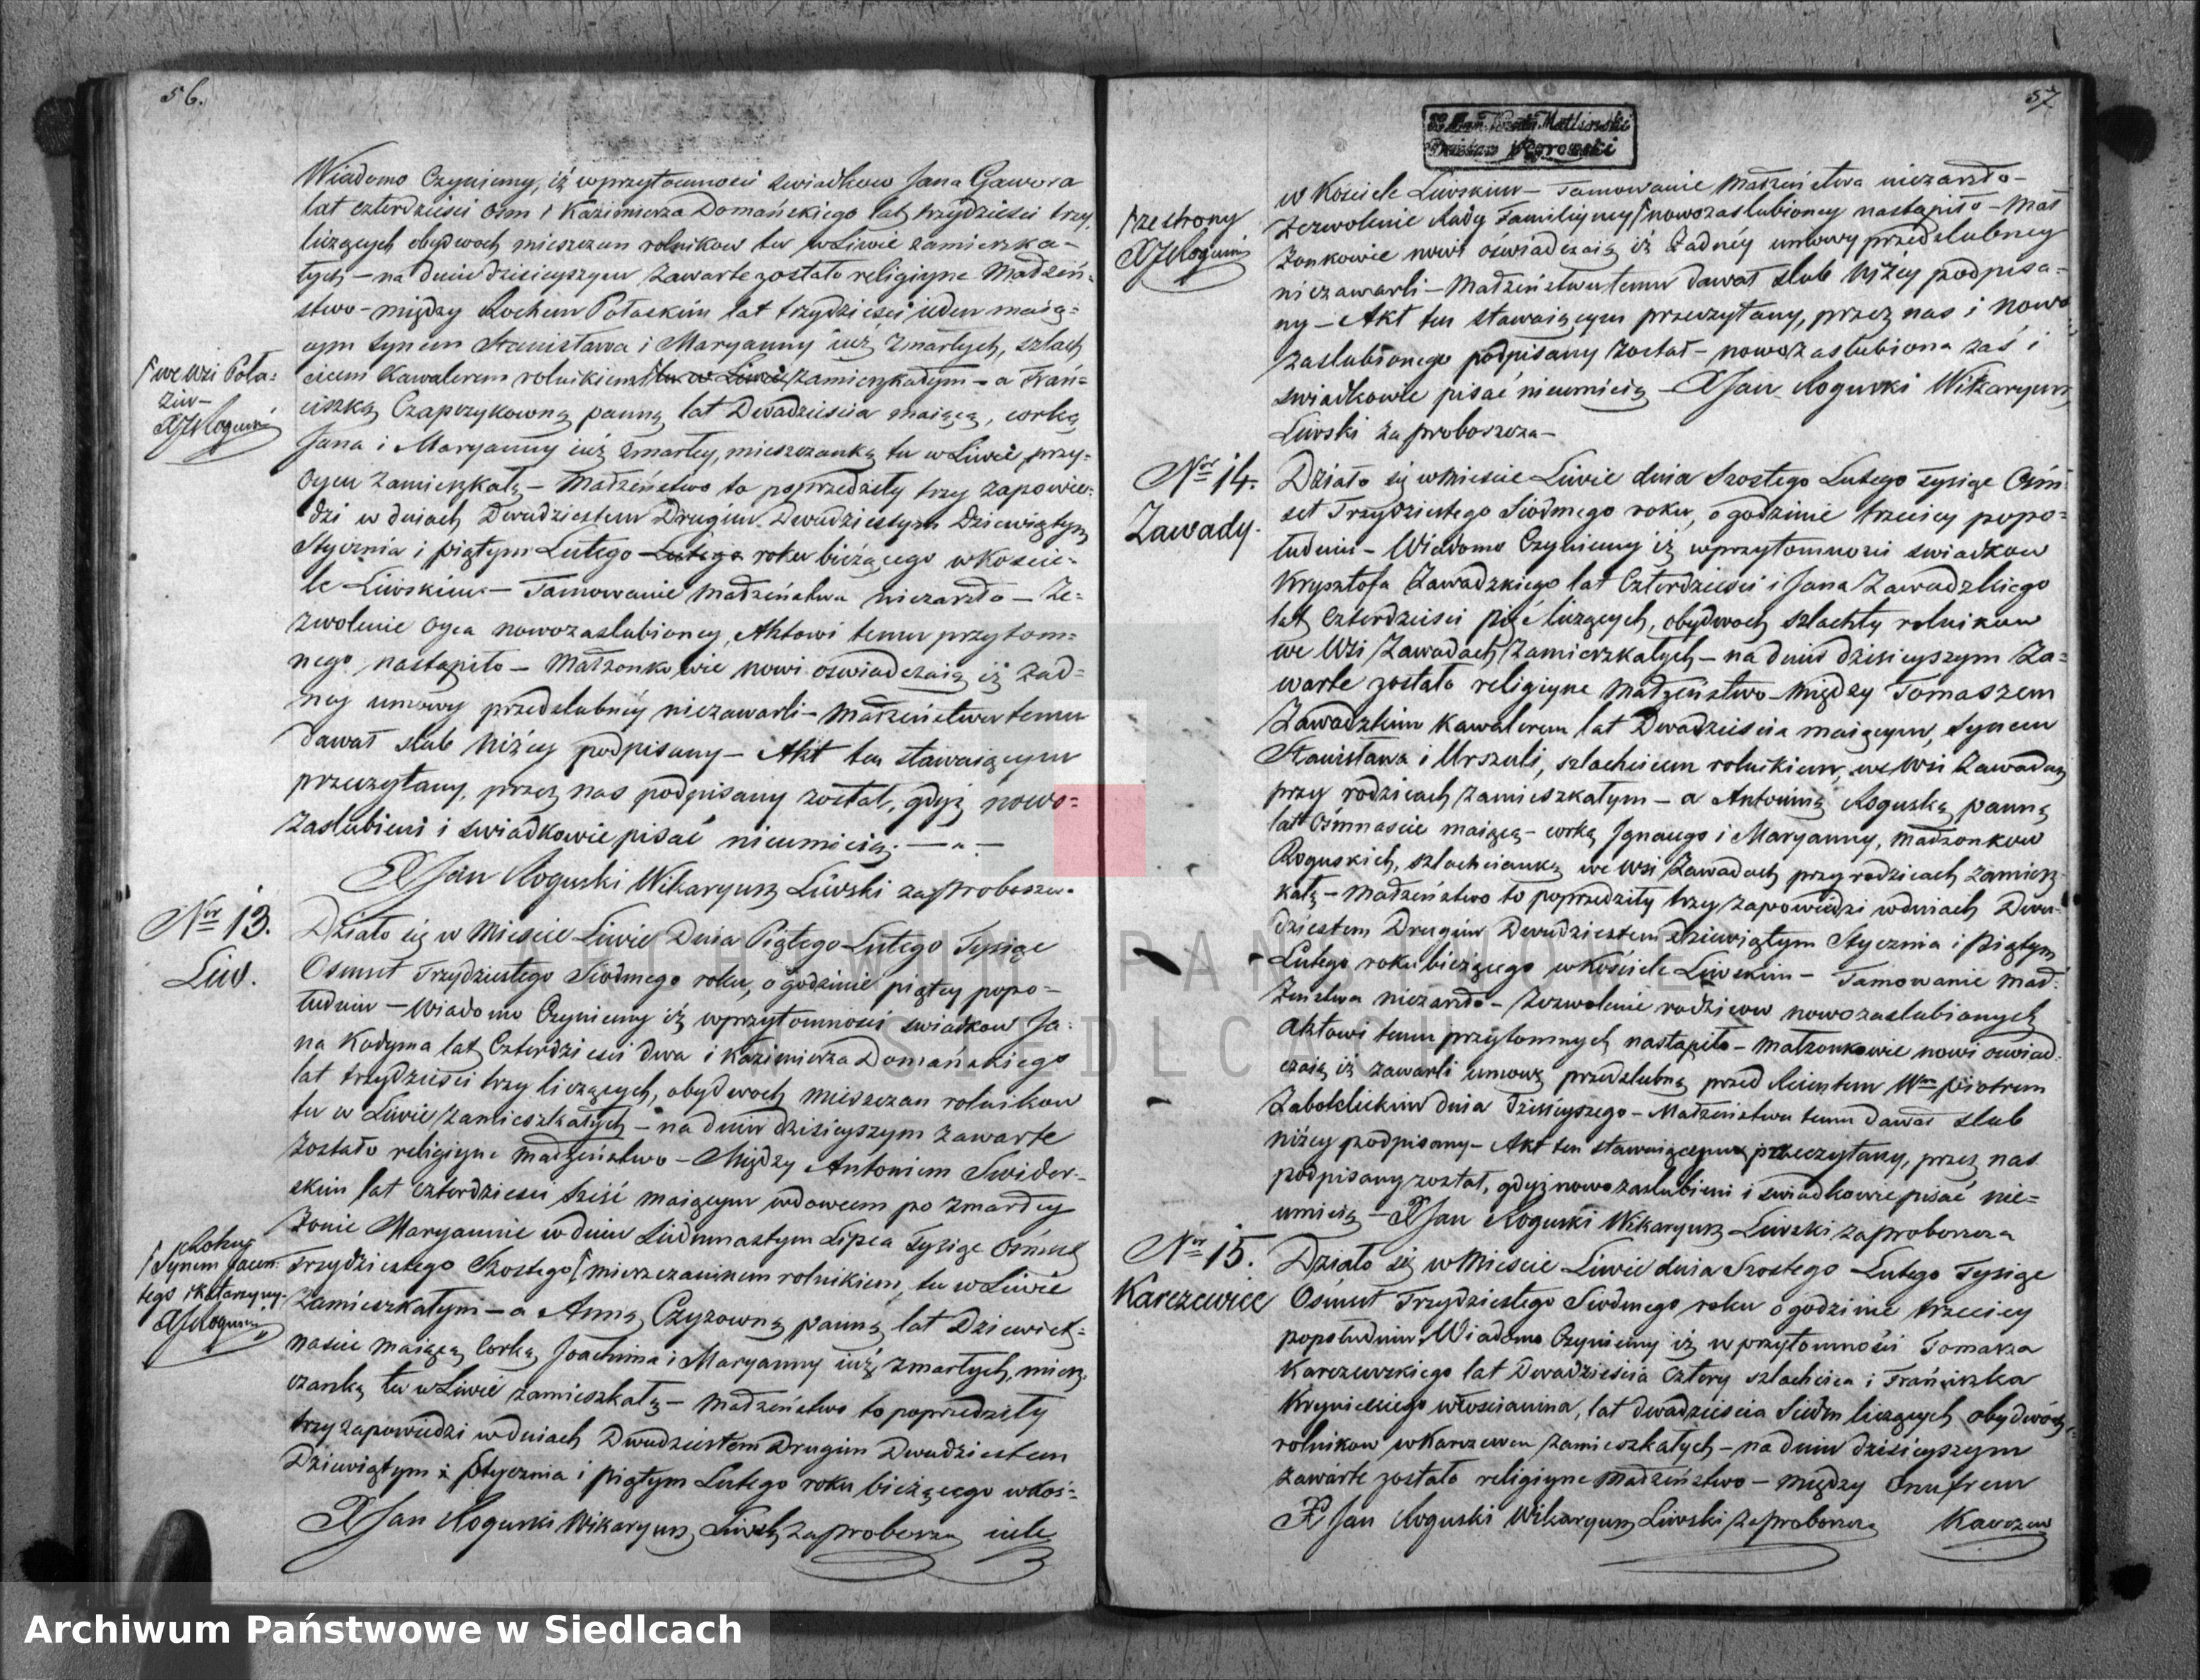 56.
Wiadomo Czyniemy, iż w przytomności swiadkow Jana Gawora
lat czterdziesci osm i Kazimierza Domańskiego lat trzydziesci trzy
liczących obydwoch mieszczan rolnikow tu w Liwie zamieszka-
łych – na dniu dzisieyszym zawarte zostało religiyne Małżeń-
stwo – między Rochem Połaskim lat trzydziesci ieden maią-
cym synem Stanisława i Maryanny iuż zmarłych, szlach
cicem kawalerem rolnikiem tu w Liwie zamieszkałym – a Fran-
ciszką Czapczykowną panną lat Dwadziescia maiącą, corką
Jana i Maryanny iuż zmarłey, mieszczanką tu w Liwie przy-
Oycu zamieszkałą – Małżeństwo to poprzedziły trzy zapowie-
dzi w dniach Dwudziestem Drugim Dwudziestym Dziewiątym
Stycznia i piątym Lutego Lutego roku bieżącego w Koscie-
le Liwskim – Tamowanie Małżeństwa niezaszło – Ze-
zwolenie Oyca nowozaslubioney, Aktowi temu przytom-
nego, nastąpiło – Małżonkowie nowi oswiadczaią iż żad-
ney umowy przedslubnéy niezawarli – Małżeństwu temu
dawał slub niżéy podpisany – Akt ten stawaiącym
przeczytany, przez nas podpisany został, gdyż nowo-
zaslubieni i swiadkowie pisać nieumieią. —"—
X Jan Roguski Wikaryusz Liwski za proboszcza.
/ we wsi Poła-
ziw –
XJRoguski
Nr 13.
Liw.
Działo się w Miescie Liwie Dnia Piątego Lutego Tysiąc
Osmset Trzydziestego Siodmego roku, o godzinie piątey popo-
łudniu – Wiadomo Czyniemy iż w przytomnosci swiadkow Ja-
na Kodyma lat Czterdziesci dwa i Kazimierza Domańskiego
lat trzydziesci trzy liczących, obydwoch mieszczan rolnikow
tu w Liwie zamieszkałych – na dniu dzisieyszym zawarte
zostało religiyne Małżeństwo – Między Antonim Swider-
skim lat czterdziesci szesć maiącym wdowcem po zmarłey
żonie Maryannie w dniu Siedmnastym Lipca Tysiąc Osmset
Trzydziestego Szostego / mieszczaninem rolnikiem, tu w Liwie
zamieszkałym – a Anną Czyżowną panną lat Dziewięt-
nascie maiącą Corką Joachima i Maryanny iuż zmarłych, miesz-
czanką tu w Liwie zamieszkałą – Małżeństwo to poprzedziły
trzy zapowiedzi w dniach Dwudziestem Drugim Dwudziestem
Dziewiątym i Stycznia i piątym Lutego roku bieżącego w Koś-
X Jan Roguski Wikaryusz Liwski za proboszcza ciele
/ Roku
/ Synem Jacen-
tego i Katarzyny –
XJRoguski
57
Węgrowski
w Kosciele Liwskim – Tamowanie Małżeństwa niezaszło –
Zezwolenie Rady Familiyney / nowozaslubioney nastąpiło – Mał
żonkowie nowi oswiadczaią iż żadnéy umowy przedslubney
niezawarli – Małżeństwu temu dawał slub niżéy podpisa-
ny – Akt ten stawaiącym przeczytany, przez nas i nowo
zaslubionego podpisany został – nowozaslubiona zaś i
swiadkowie pisać nieumieią – X Jan Roguski Wikaryusz
Liwski za proboszcza –
/ ze strony
XJRoguski
Nr 14.
Zawady.
Działo się w Miescie Liwie dnia Szostego Lutego Tysiąc Osm
set Trzydziestego Siodmego roku, o godzinie trzeciey popo-
łudniu – Wiadomo Czyniemy iż w przytomnosci swiadkow
Krysztofa Zawadzkiego lat Czterdziesci i Jana Zawadzkiego
lat Czterdziesci pięć liczących, obydwoch szlachty rolnikow
we Wsi Zawadach zamieszkałych – na dniu dzisieyszym za-
warte zostało religiyne Małżeństwo – między Tomaszem
Zawadzkim kawalerem lat Dwadziescia maiącym, synem
Stanisława i Urszuli, szlachcicem rolnikiem, we Wsi Zawadach
przy rodzicach zamieszkałym – a Antoniną Roguską panną
lat Osmnascie maiącą – corką Ignacego i Maryanny, Małżonkow
Roguskich, szlachcianką we Wsi Zawadach przy rodzicach zamiesz-
kałą – Małżeństwo to poprzedziły trzy zapowiedzi w dniach Dwu-
dziestem Drugim Dwudziestem Dziewiątym Stycznia i Piątym
Lutego roku bieżącego w Kościele Liwskim – Tamowanie Mał-
żeństwa niezaszło – Zezwolenie rodzicow nowozaslubionych
Aktowi temu przytomnych nastąpiło – Małżonkowie nowi oswiad-
czaią iż zawarli umowę przedslubną przed Reientem Wm Piotrem
dnia dzisieyszego – Małżeństwu temu dawał slub
niżey podpisany – Akt ten stawaiącym przeczytany, przez nas
podpisany został, gdyż nowozaslubieni i swiadkowie pisać nie-
umieią – X Jan Roguski Wikaryusz Liwski za proboszcza
Nr 15.
Karczewiec
Działo się w Miescie Liwie dnia Szostego Lutego Tysiąc
Ośmset Trzydziestego Siodmego roku o godzinie trzeciey
popołudniu Wiadomo Czyniemy iż w przytomności Tomasza
Karczewskiego lat Dwadziescia Cztery szlachcica i Franciszka
Krynickiego włoscianina, lat dwadziescia Siedm liczących obydwóch
rolnikow w Karczewcu zamieszkałych – na dniu dzisieyszym
zawarte zostało religiyne Małżeństwo – między Onufrem
X Jan Roguski Wikaryusz Liwski za proboszcza Karczew
ARCHIWUM PAŃSTWOWE
W SIEDLCACH
Archiwum Państwowe w Siedlcach